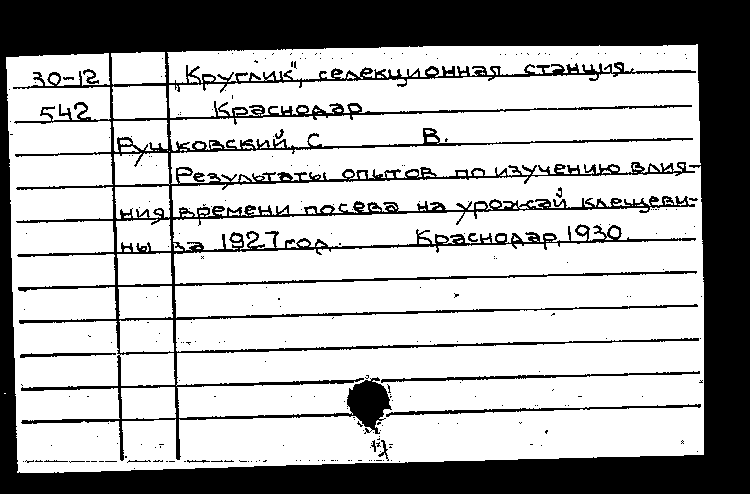 30-12 „Круглик", селекционная станция.
542 Краснодар.
Рушковский, С В.
Результаты опытов по изучению влия-
ния времени посева на урожай клещеви-
ны за 1927 год. Краснодар, 1930.